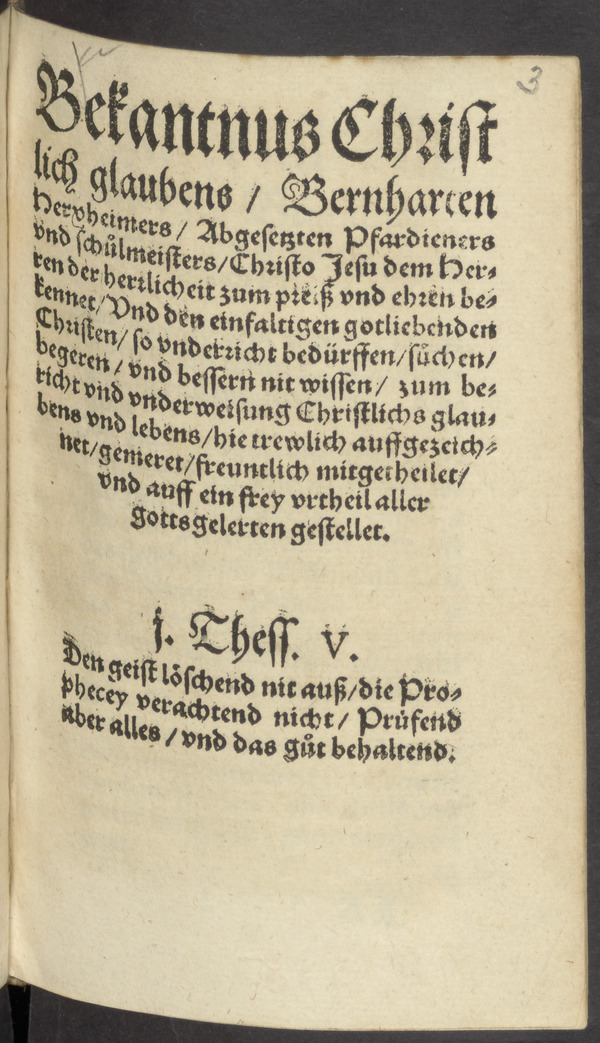 3
Bekantnus Christ
lich glaubens / Bernharten
Herxheimers / Abgesetzten Pfardieners
vnd schůlmeisters / Christo Jesu dem Her⸗
ren der herrlicheit zum preiß vnd ehren be⸗
kennet / Vnd den einfaltigen gotliebenden
Christen / so vnderricht bedürffen / sůchen /
begeren / vnd bessern nit wissen / zum be⸗
richt vnd vnderweisung Christlichs glau⸗
bens vnd lebens / hie trewlich auffgezeich⸗
net / gemeret / freuntlich mitgetheilet /
vnd auff ein frey vrtheil aller
gottsgelerten gestellet.
j. Thess. v.
Den geist löschend nit auß / die Pro⸗
phecey verachtend nicht / Prüfend
aber alles / vnd das gůt behaltend.